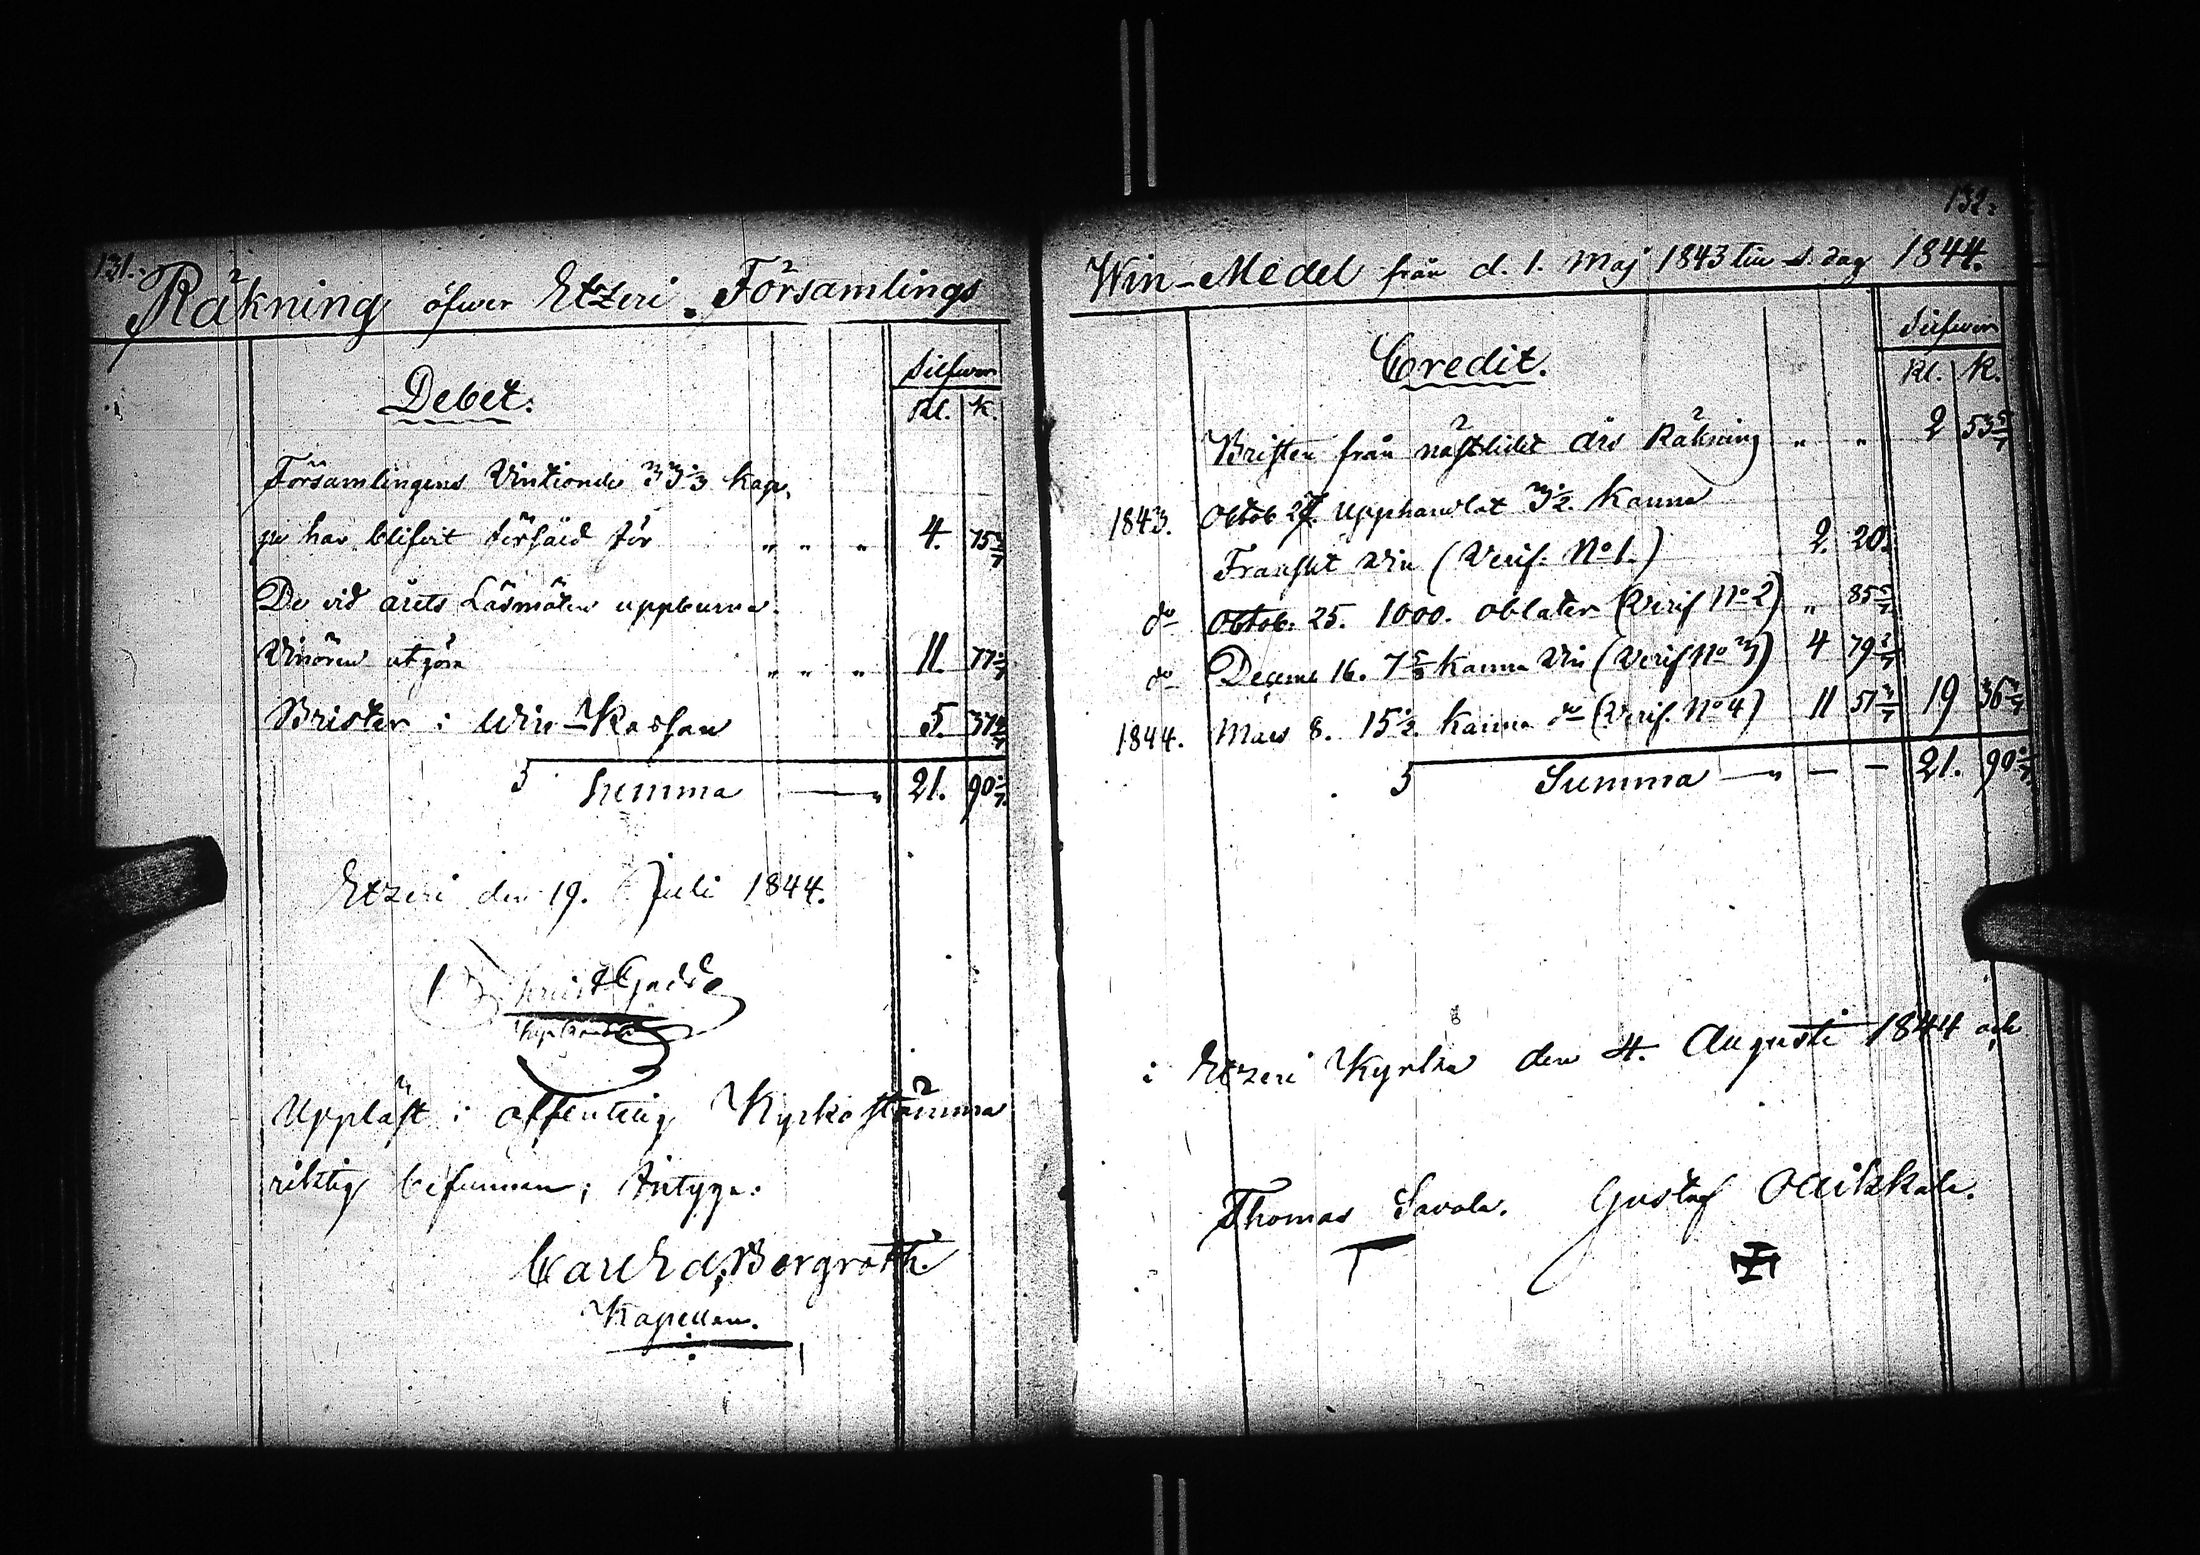 131.
Räkning öfwer Etzeri Församlings
Debet.
Silfwer
Rl. K.
Församlingens Vintionde 33 1/3 kap.
har blifvit försåld för " " " 4. 75 5/7
De vid årets Läsmöten uppburna
Vinören utgöra " " " 11. 77 1/7
Brister i Win-Kassan 5. 37 2/7
Summa — " 21. 90 1/7
Etzeri den 19. Juli 1844.
Gadd
Uppläst i offentlig Kyrkostämma
riktig befunnen; Intyga:
Carl Ed. Bergroth.
Kapellan.
132.
Win-Medel från d. 1. Maj 1843 till s. dag 1844.
Credit.
Silfwer
Rl. K.
Bristen från nästlidet års Räkning " " 2 53 5/7
1843. Octob 27. Upphandlat 3 1/2 Kanna
Franskt Vin (Verif: No 1.) 2. 20.
do Octob. 25. 1000. Oblater (Verif No 2) " 85 5/7
do Decemb 16. 7 5/8 Kanna Vin (Verif No 3) 4 79 2/7
1844. Mars 8. 15 1/2 Kanna do (Verif. No 4) 11 51 3/7 19 36 3/7
Summa — " — — 21. 90 1/7
i Etzeri Kyrka den 4. Augusti 1844 och
Thomas Savola. Gustaf Ollikkala.